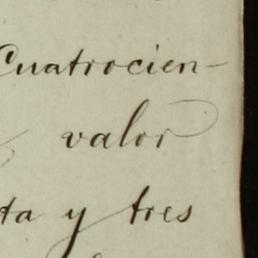 Cuatrocien-
valor
ta y tres